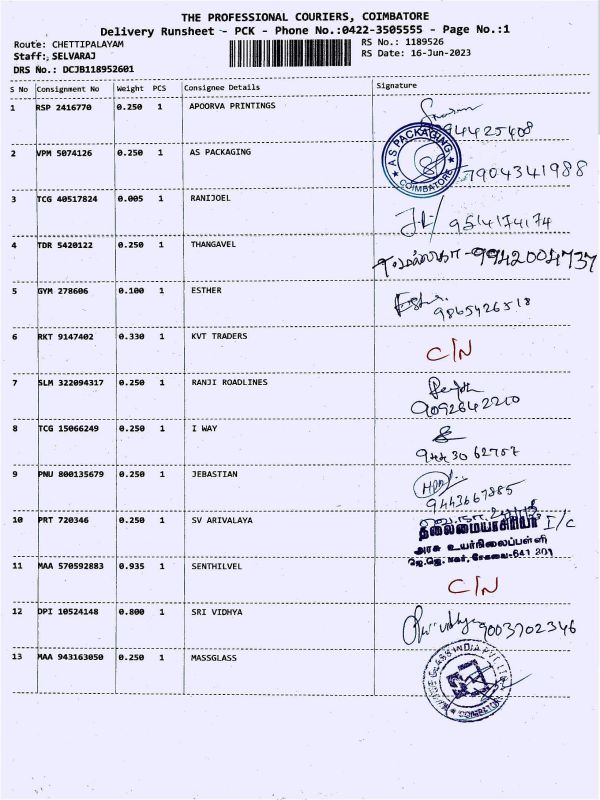 THE PROFESSIONAL COURIERS, COIMBATORE
Delivery Runsheet - PCK - Phone No.:0422-3505555 - Page No.:1
Route: CHETTIPALAYAM RS No.: 1189526
Staff: SELVARAJ RS Date: 16-Jun-2023
DRS No.: DCJB118952601
S No Consignment No Weight PCS Consignee Details Signature
1 RSP 2416770 0.250 1 APOORVA PRINTINGS
2 VPM 5074126 0.250 1 AS PACKAGING 7904341988
A S PACKAGING
COIMBATORE
3 TCG 40517824 0.005 1 RANIJOEL 9514174174
4 TDR 5420122 0.250 1 THANGAVEL -9942004737
5 GYM 278606 0.100 1 ESTHER
9865426518
6 RKT 9147402 0.330 1 KVT TRADERS C/N
7 SLM 322094317 0.250 1 RANJI ROADLINES
9092642210
8 TCG 15066249 0.250 1 I WAY
9 PNU 800135679 0.250 1 JEBASTIAN
9443667885
10 PRT 720346 0.250 1 SV ARIVALAYA
தலைமையாசிரியர் I/C
அரசு உயர்நிலைப்பள்ளி
ஜெ.ஜெ. நகர், கோவை-641 201
11 MAA 570592883 0.935 1 SENTHILVEL C/N
12 DPI 10524148 0.800 1 SRI VIDHYA 9003702346
13 MAA 943163050 0.250 1 MASSGLASS
GLASS INDIA PVT. LTD
COIMBATORE